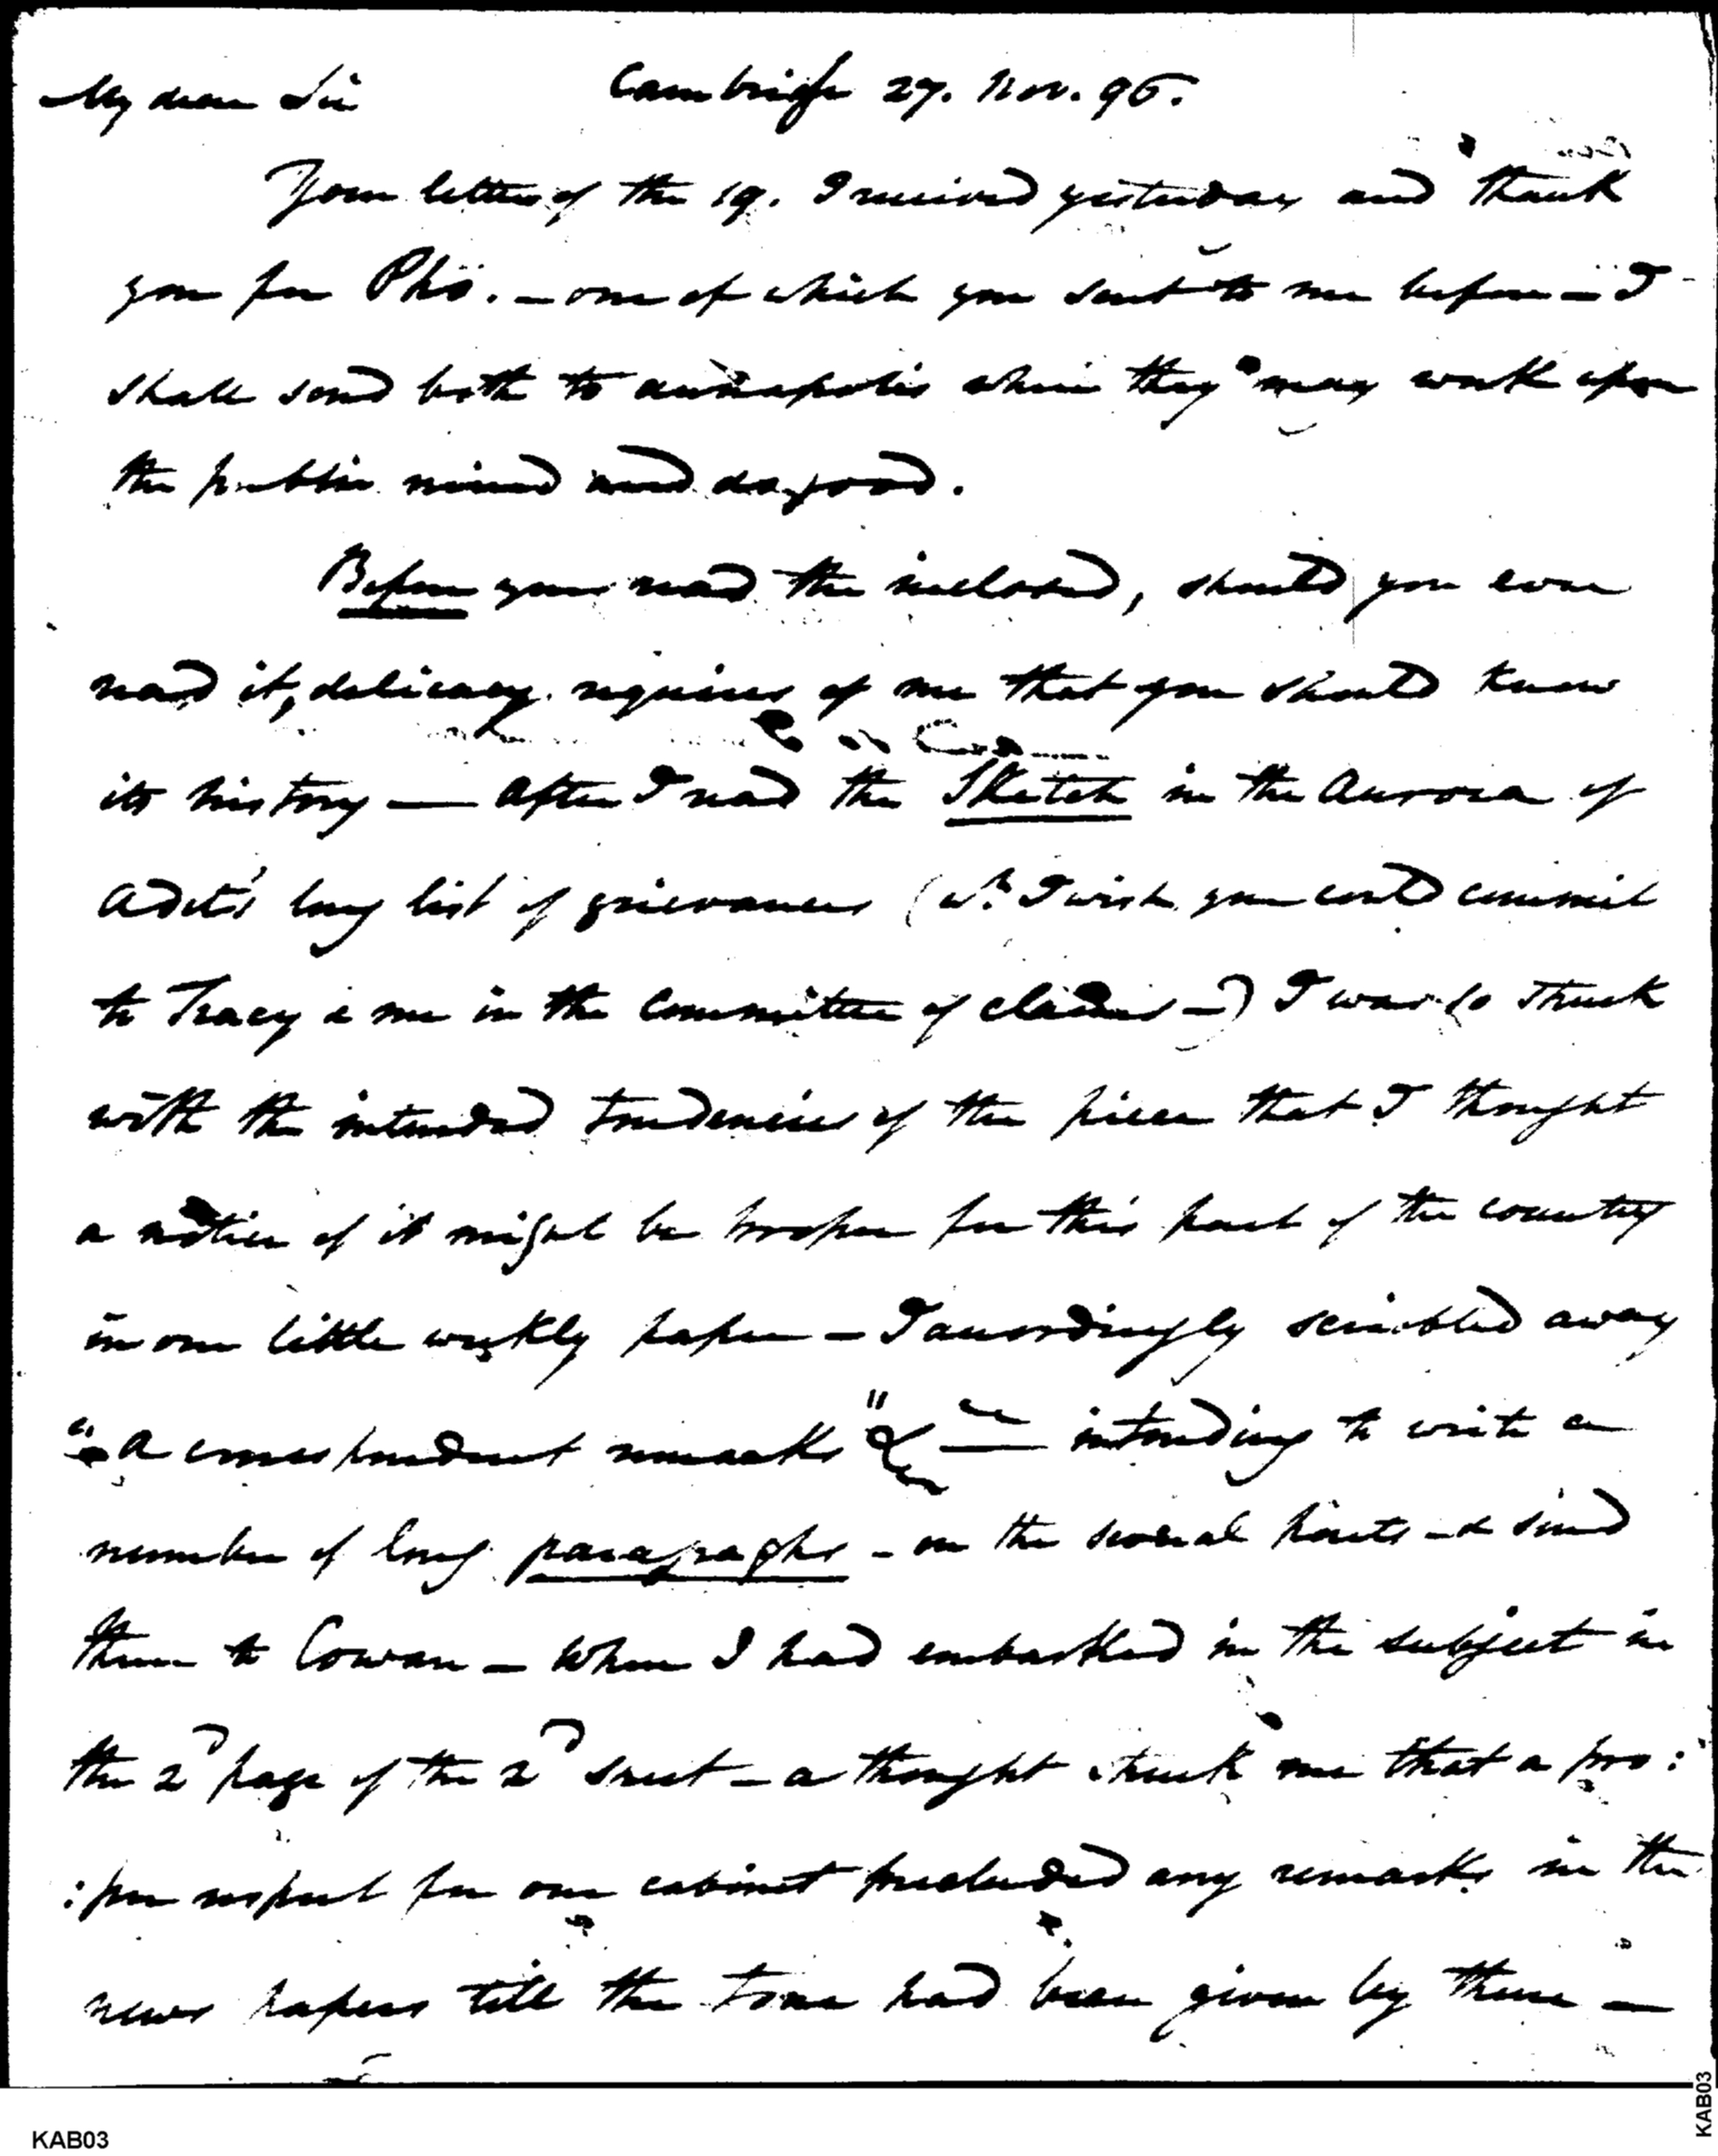 My dear Sir Cambridge 27. Nov. 96.
Your letter of the 19. I received yesterday and thank
you for Pho. — one of which you sent to me before — I
shall send both to annapolis where they may work upon
the public mind and do good.
Before you read the inclosed, should you ever
read it, delicacy requires of me that you should know
its history — After I read the Sketch in the Aurora of
Adet's long list of grievances (wh. I wish you could commit
to Tracy & me in the Committee of claims —) I was so struck
with the intended tendencies of the piece that I thought
a notice of it might be proper for this part of the country
in our little weekly paper — I accordingly scribbled away
"A correspondent remarks" &c — intending to write a
number of long paragraphs — on the several points — & send
them to Cowan — When I had embarked in the subject in
the 2d page of the 2d sheet — a thought struck me that a pro:
:per respect for our cabinet precluded any remarks in the
news papers till the tone had been given by them —
KAB03
KAB03